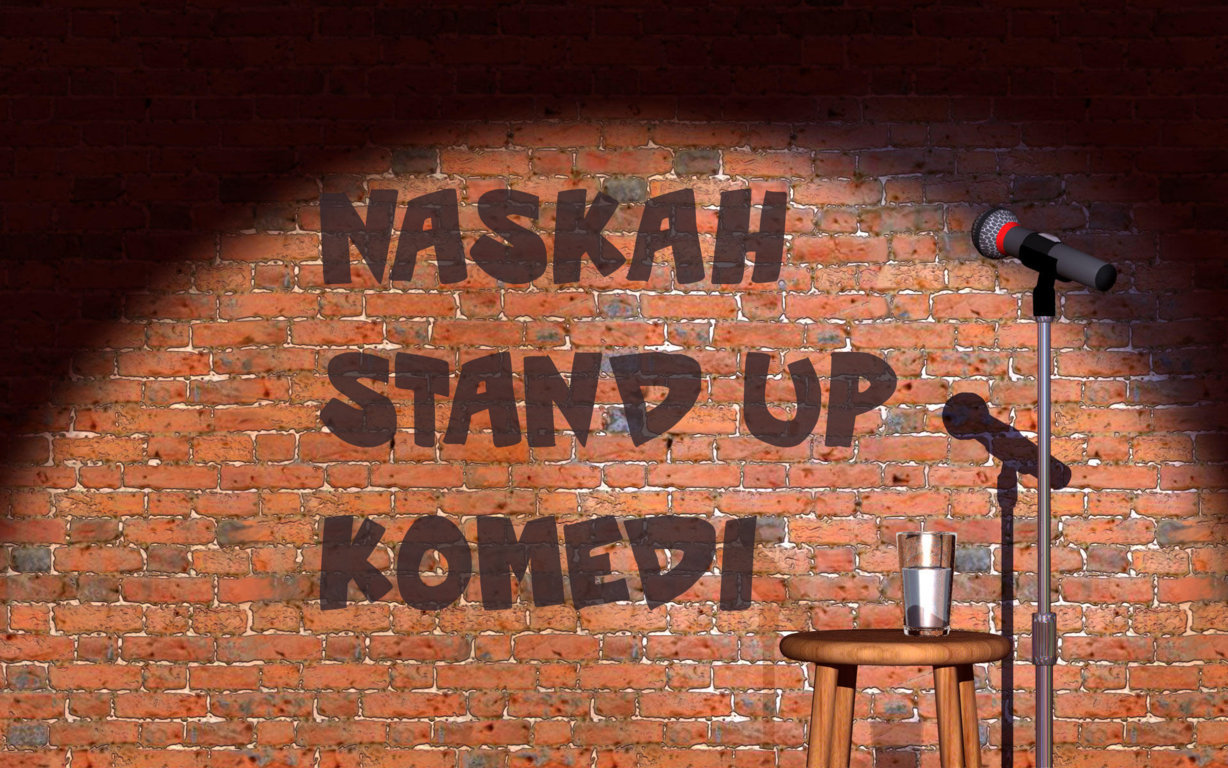 NASKAH
STAND UP
KOMEDI